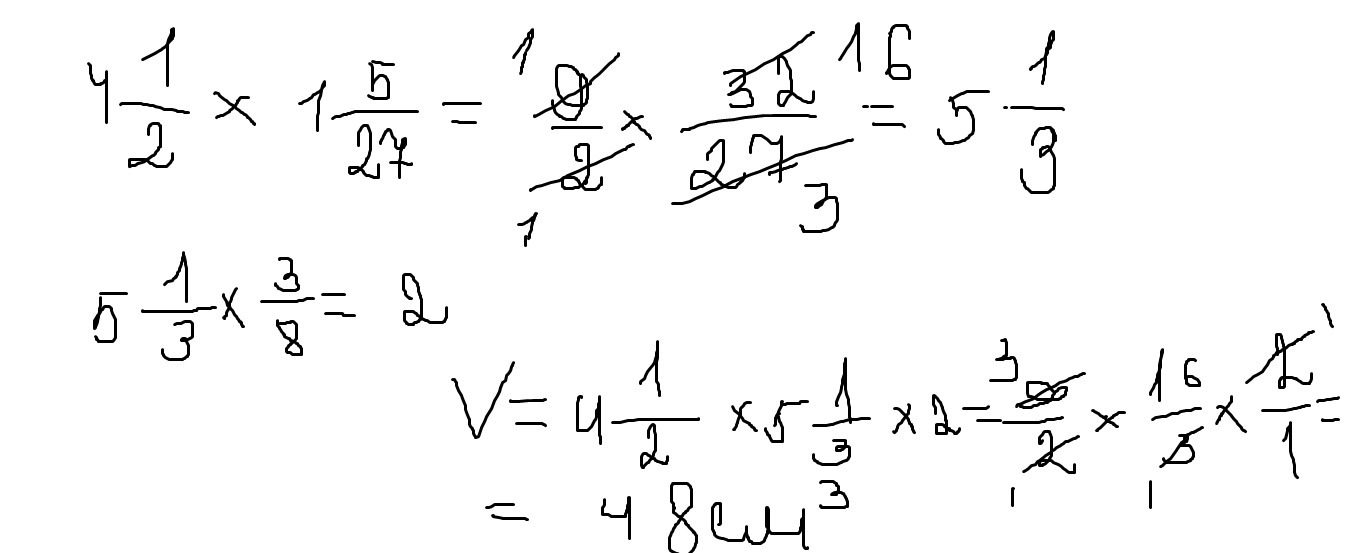 4 1/2 × 1 5/27 = 9/2 × 32/27 = 5 1/3
5 1/3 × 3/8 = 2
V = 4 1/2 × 5 1/3 × 2 = 9/2 × 16/3 × 2/1 =
= 48 см³